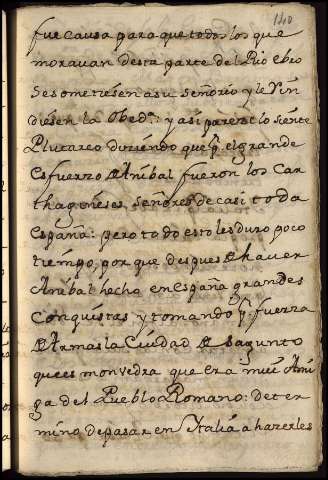 140
fue causa para que todos los que
morauan desta parte del Rio ebro
se sometiesen a su señorio y le Rin
diesen la obed.ª: y asi pareze lo siente
Plutarco diziendo que p.r el grande
esfuerzo de Anibal fueron los Car
thagineses, señores de casi toda
españa: pero todo esto les duro poco
tiempo, por que despues de hauer
Anibal hecho en españa grandes
Conquistas y tomando p.r fuerza
de Armas la Ciudad de sagunto
que es monvedra que era mui Ami
ga del Pueblo Romano: Deter
mino de pasar en Italia a hazerles